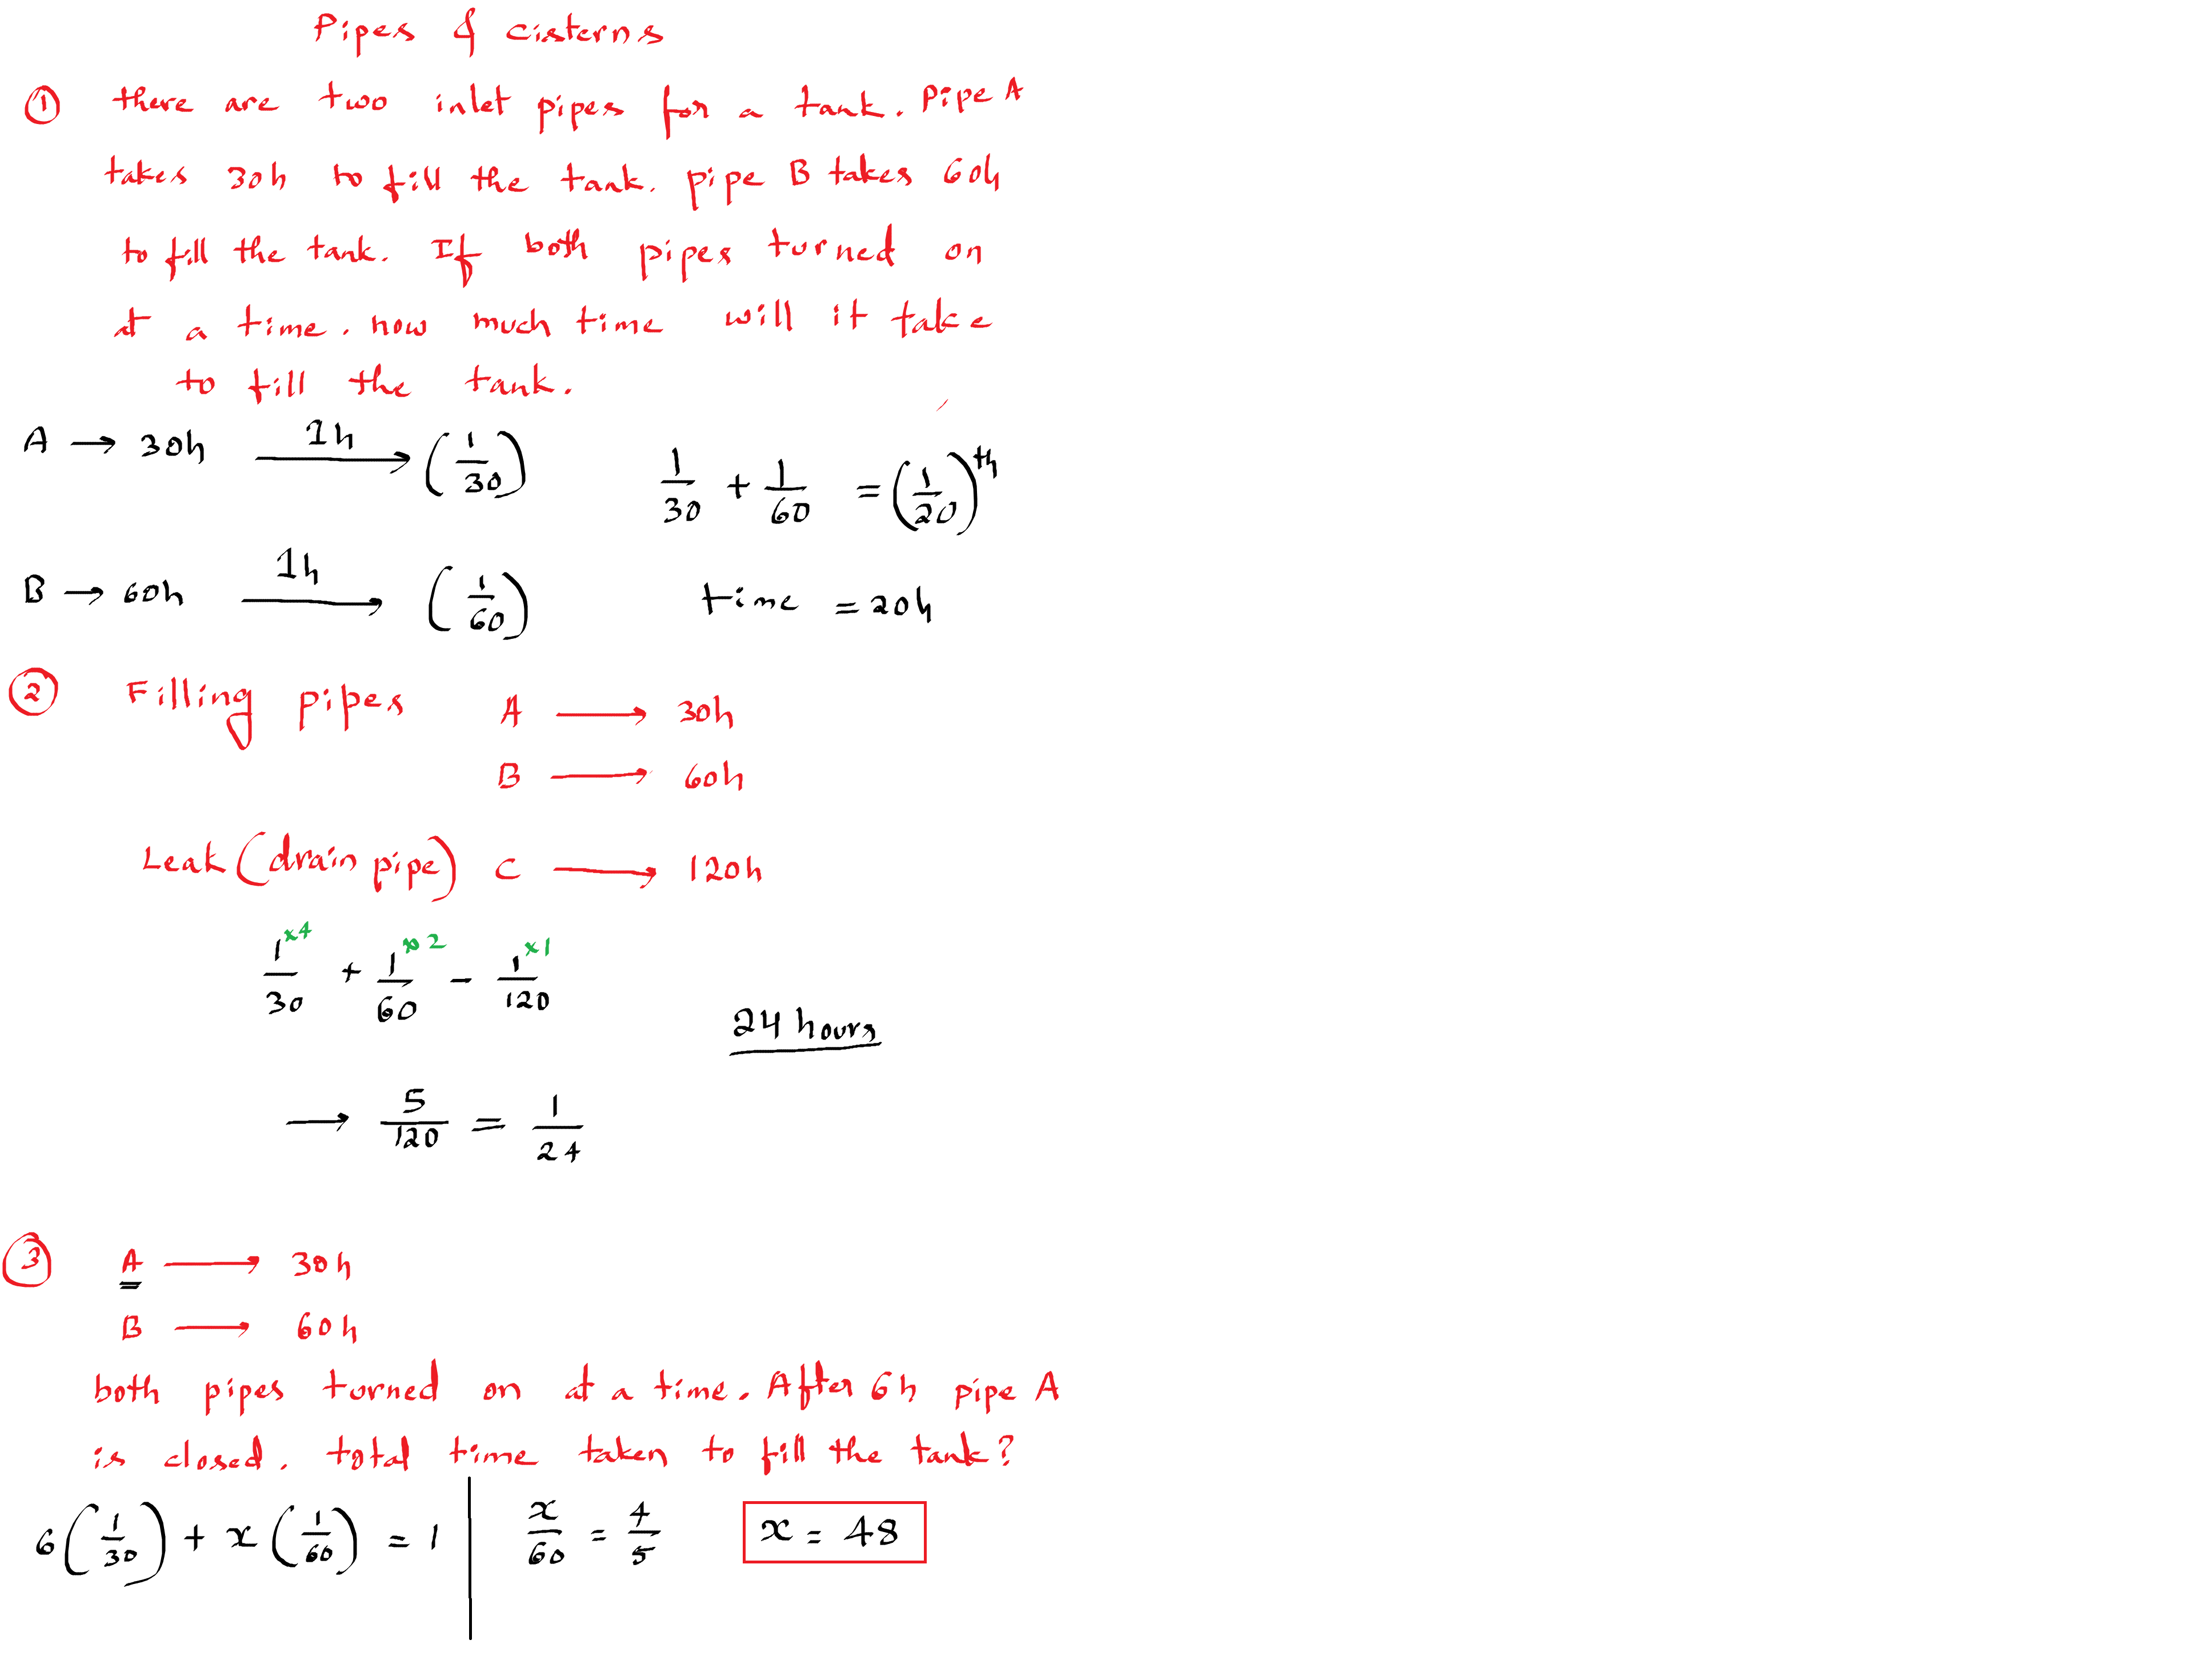 Pipes & cisterns
① there are two inlet pipes for a tank. Pipe A
takes 30h to fill the tank. pipe B takes 60h
to fill the tank. If both pipes turned on
at a time. how much time will it take
to fill the tank.
A → 30h 1h → (1/30) 1/30 + 1/60 = (1/20)th
B → 60h 1h → (1/60) time = 20h
② Filling pipes A → 30h
B → 60h
Leak (drain pipe) C → 120h
1/30 x4 + 1/60 x2 - 1/120 x1
24 hours
→ 5/120 = 1/24
③ A → 30h
B → 60h
both pipes turned on at a time. After 6h pipe A
is closed. total time taken to fill the tank?
6(1/30) + x(1/60) = 1 | x/60 = 4/5 x = 48